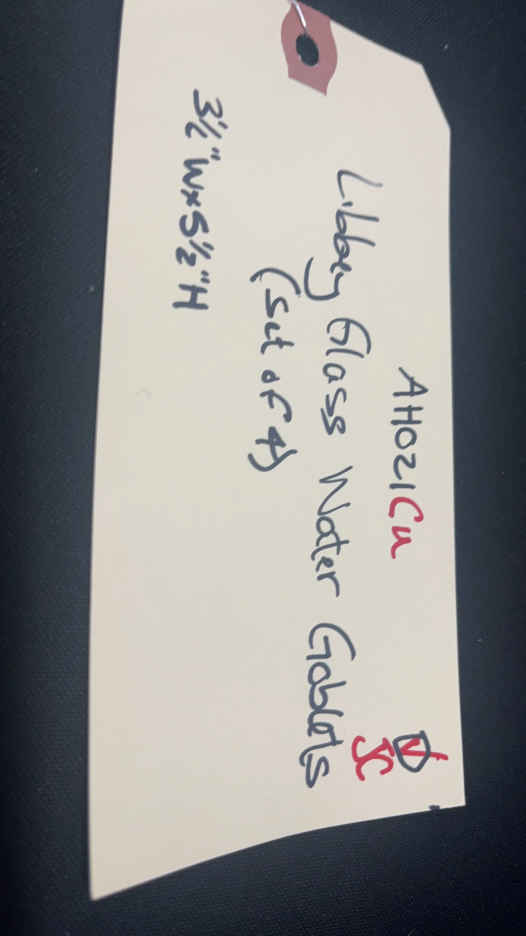 AH021Cu
JC
Libbey Glass Water Goblets
(Set of 4)
3½"W×5½"H